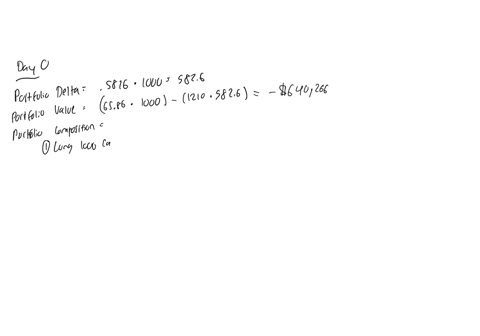 Day 0
Portfolio Delta = .5826 · 1000 = 582.6
Portfolio Value = (65.86 · 1000) - (1210 · 582.6) = -$640,266
Portfolio Composition =
① Long 1000 Ca